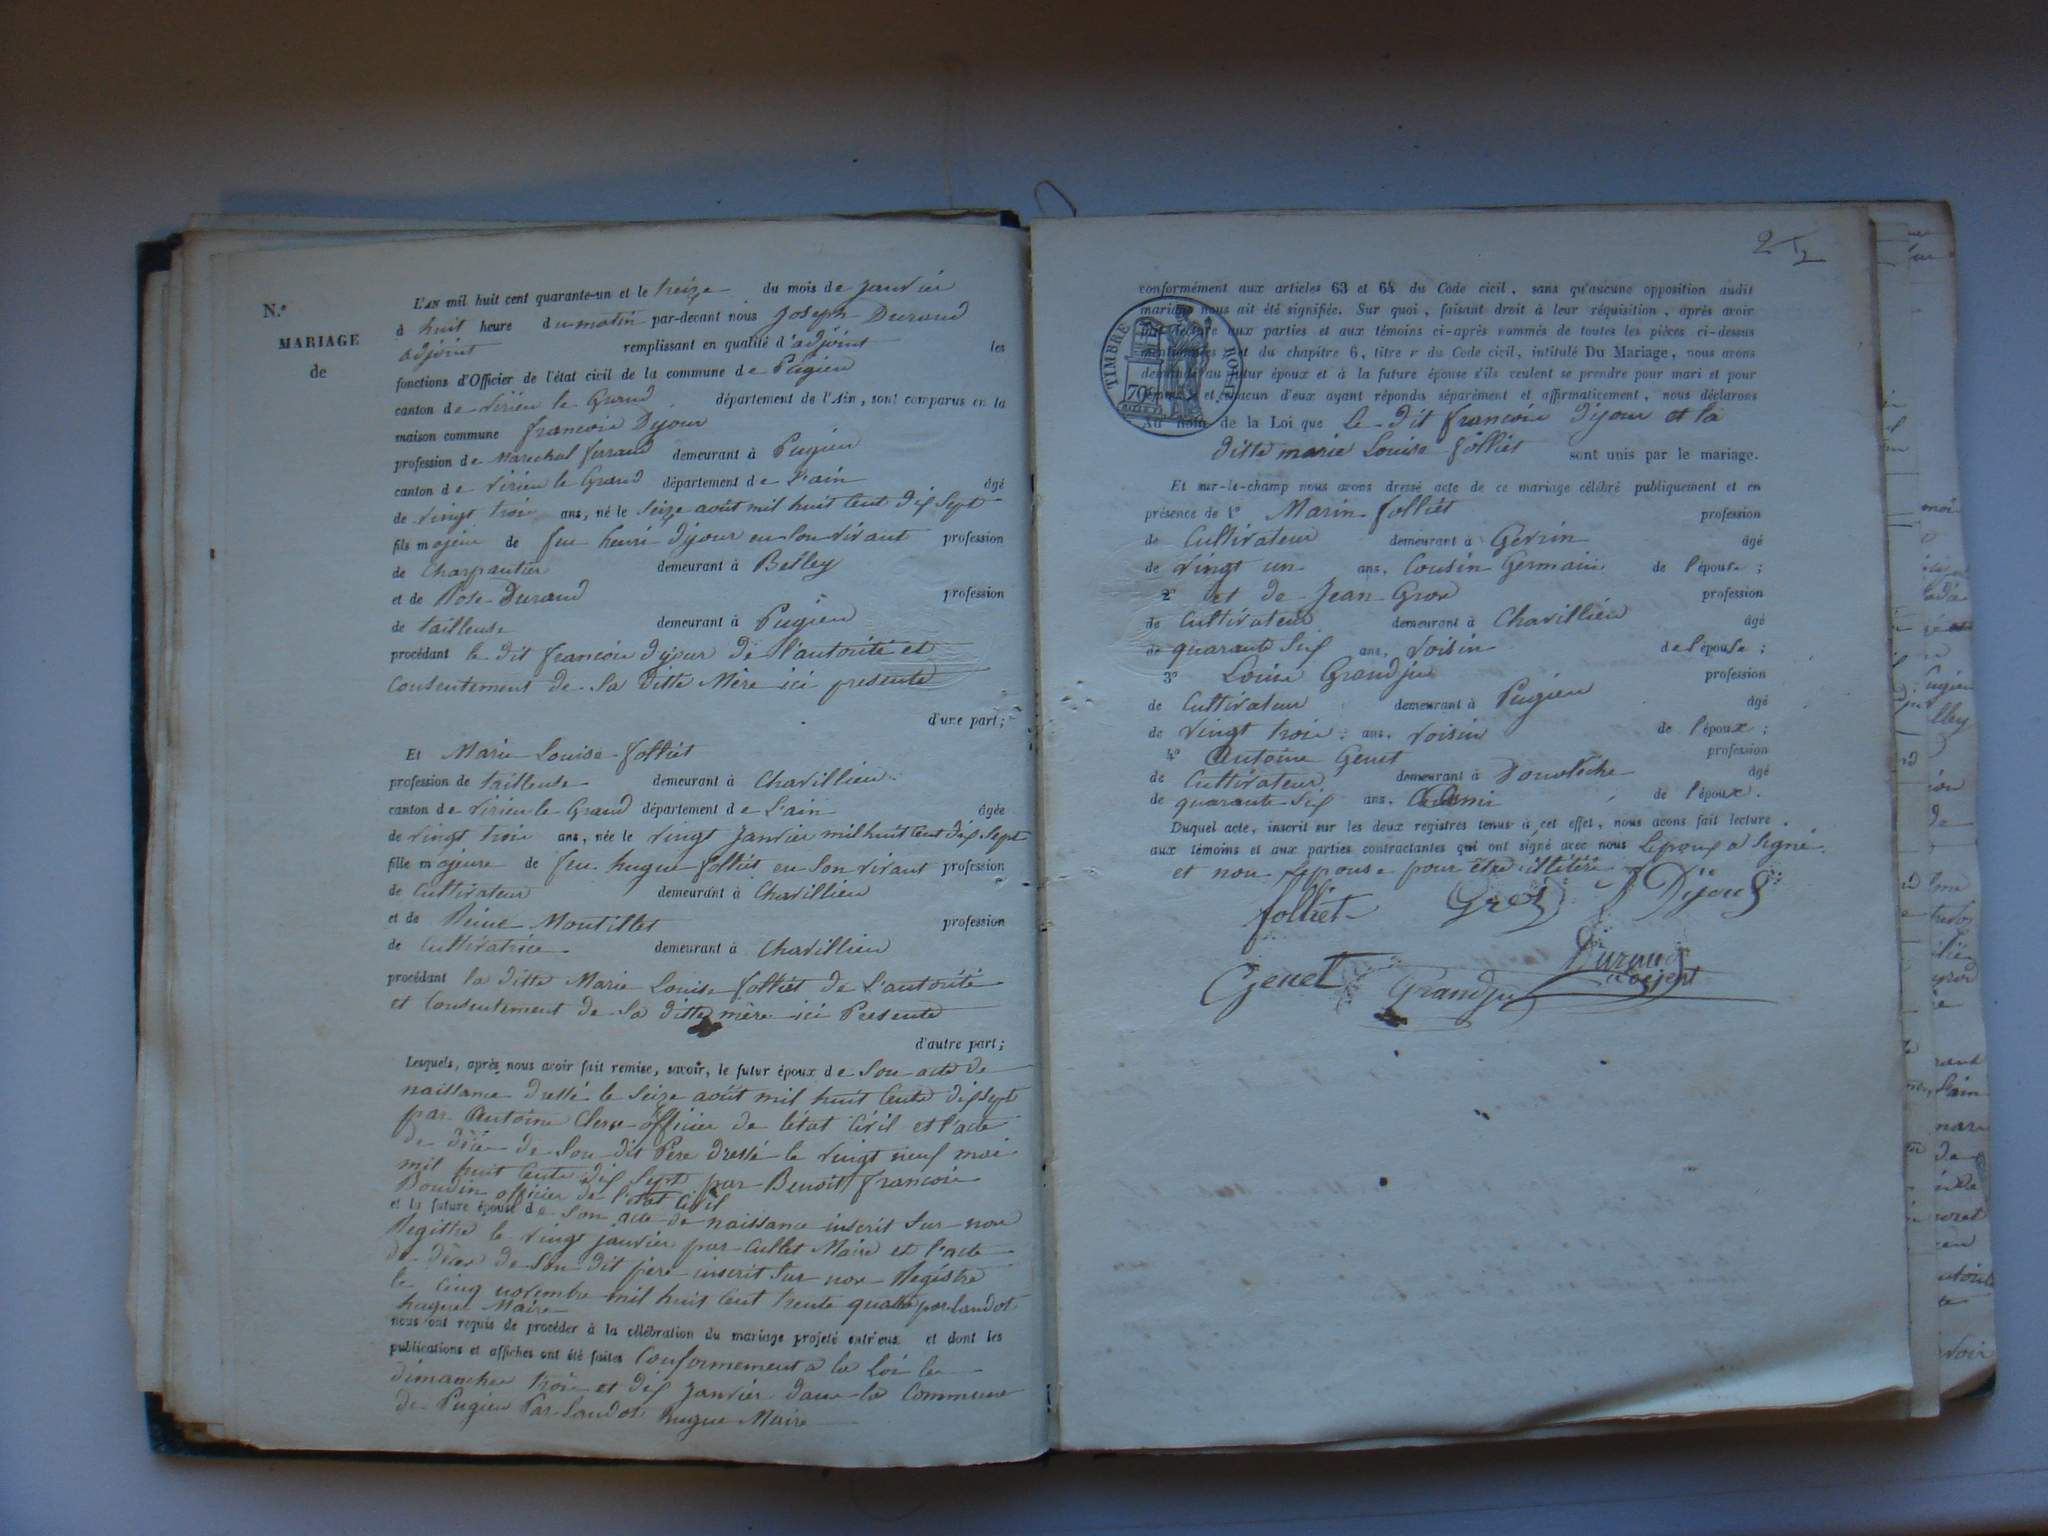 N.º
MARIAGE
de
L'AN mil huit cent quarante-un et le treize du mois de janvier
à huit heure du matin par-devant nous Joseph Durand
adjoint remplissant en qualité d'adjoint les
fonctions d'Officier de l'état civil de la commune de Pugieu
canton de Virieu le Grand département de l'Ain, sont comparus en la
maison commune françois Dijour
profession de marechal ferrand demeurant à Pugieu
canton de Virieu le Grand département de l'ain âgé
de vingt trois ans, né le seize août mil huit cent dix sept
fils majeur de feu henri dijour en son vivant profession
de Charpentier demeurant à Belley
et de Rose Durand profession
de tailleuse demeurant à Pugieu
procédant le dit françois dijour de l'autorité et
Consentement de sa ditte Mère ici présente
d'une part;
Et Marie Louise folliet
profession de tailleuse demeurant à Chavillieu
canton de Virieu le Grand département de l'ain âgée
de vingt trois ans, née le vingt janvier mil huit cent dix sept
fille majeure de feu hugue folliet en son vivant profession
de Cultivateur demeurant à Chavillieu
et de Reine Montillet profession
de Cultivatrice demeurant à Chavillieu
procédant la ditte Marie Louise folliet de l'autorité
et Consentement de sa ditte mère ici Présente
d'autre part;
Lesquels, après nous avoir fait remise, savoir, le futur époux de son acte de
naissance dressé le seize août mil huit cents dix sept
par Antoine officier de l'état Civil et l'acte
de décès de son dit Père dressé le vingt neuf mai
mil huit cents dix sept par Benoit françois
Boudin officier de l'état Civil
et la future épouse de son acte de naissance inscrit sur nos
Registre le vingt janvier par Cullet Maire et l'acte
de décès de son dit père inscrit sur nos Registre
le cinq novembre mil huit cent trente quatre par Landot
hugue Maire
nous ont requis de procéder à la célébration du mariage projeté entr'eux et dont les
publications et affiches ont été faites Conformement à la Loi les
dimanches trois et dix janvier dans la Commune
de Pugieu Par Landot hugue Maire
2
conformément aux articles 63 et 64 du Code civil, sans qu'aucune opposition audit
mariage nous ait été signifiée. Sur quoi, faisant droit à leur réquisition, après avoir
fait lecture aux parties et aux témoins ci-après nommés de toutes les pièces ci-dessus
mentionnées et du chapitre 6, titre v du Code civil, intitulé Du Mariage, nous avons
demandé au futur époux et à la future épouse s'ils veulent se prendre pour mari et pour
femme, et chacun d'eux ayant répondu séparément et affirmativement, nous déclarons
Au nom de la Loi que Le dit françois dijour et la
ditte marie Louise folliet sont unis par le mariage.
TIMBRE ROYAL
70
Et sur-le-champ nous avons dressé acte de ce mariage célébré publiquement et en
présence de 1º Marin folliet profession
de Cultivateur demeurant à Gevrin âgé
de vingt un ans, Cousin Germain de l'épouse;
2º et de Jean Gros profession
de Cultivateur demeurant à Chavillieu âgé
de quarante six ans, Voisin de l'épouse;
3º Louis Grandjus profession
de Cultivateur demeurant à Pugieu âgé
de vingt trois ans, Voisin de l'époux;
4º Antoine Genet profession
de Cultivateur demeurant à âgé
de quarante six ans, Ami de l'époux.
Duquel acte, inscrit sur les deux registres tenus à cet effet, nous avons fait lecture
aux témoins et aux parties contractantes qui ont signé avec nous L'époux a signé
et non l'épouse pour être illitérée
folliet Gros f Dijoud
Durand
adjoint
Genet Grandjus